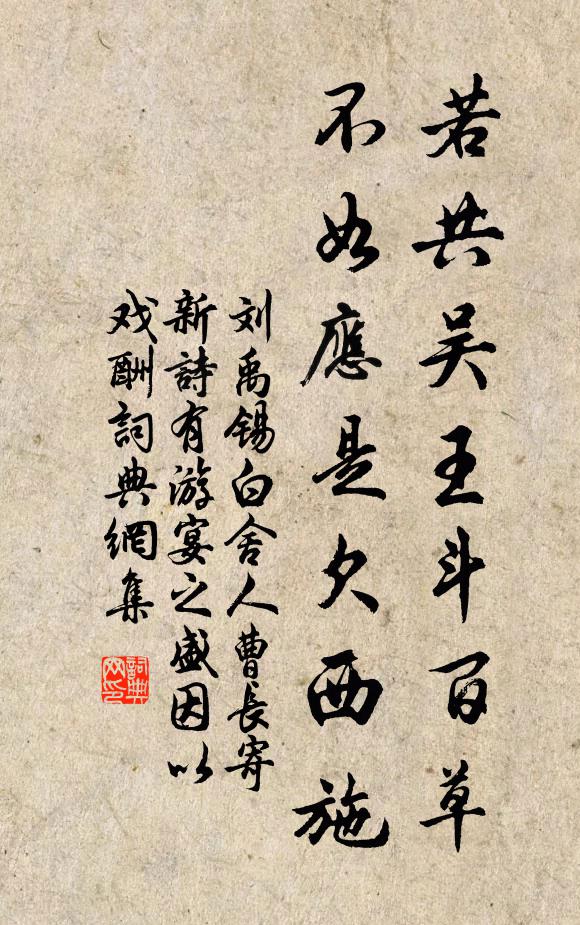 若共吴王斗百草
不如應是欠西施
刘禹锡白舍人曹長寄
新詩有游宴之盛因以
戏酬詞典網集
詞典
网印